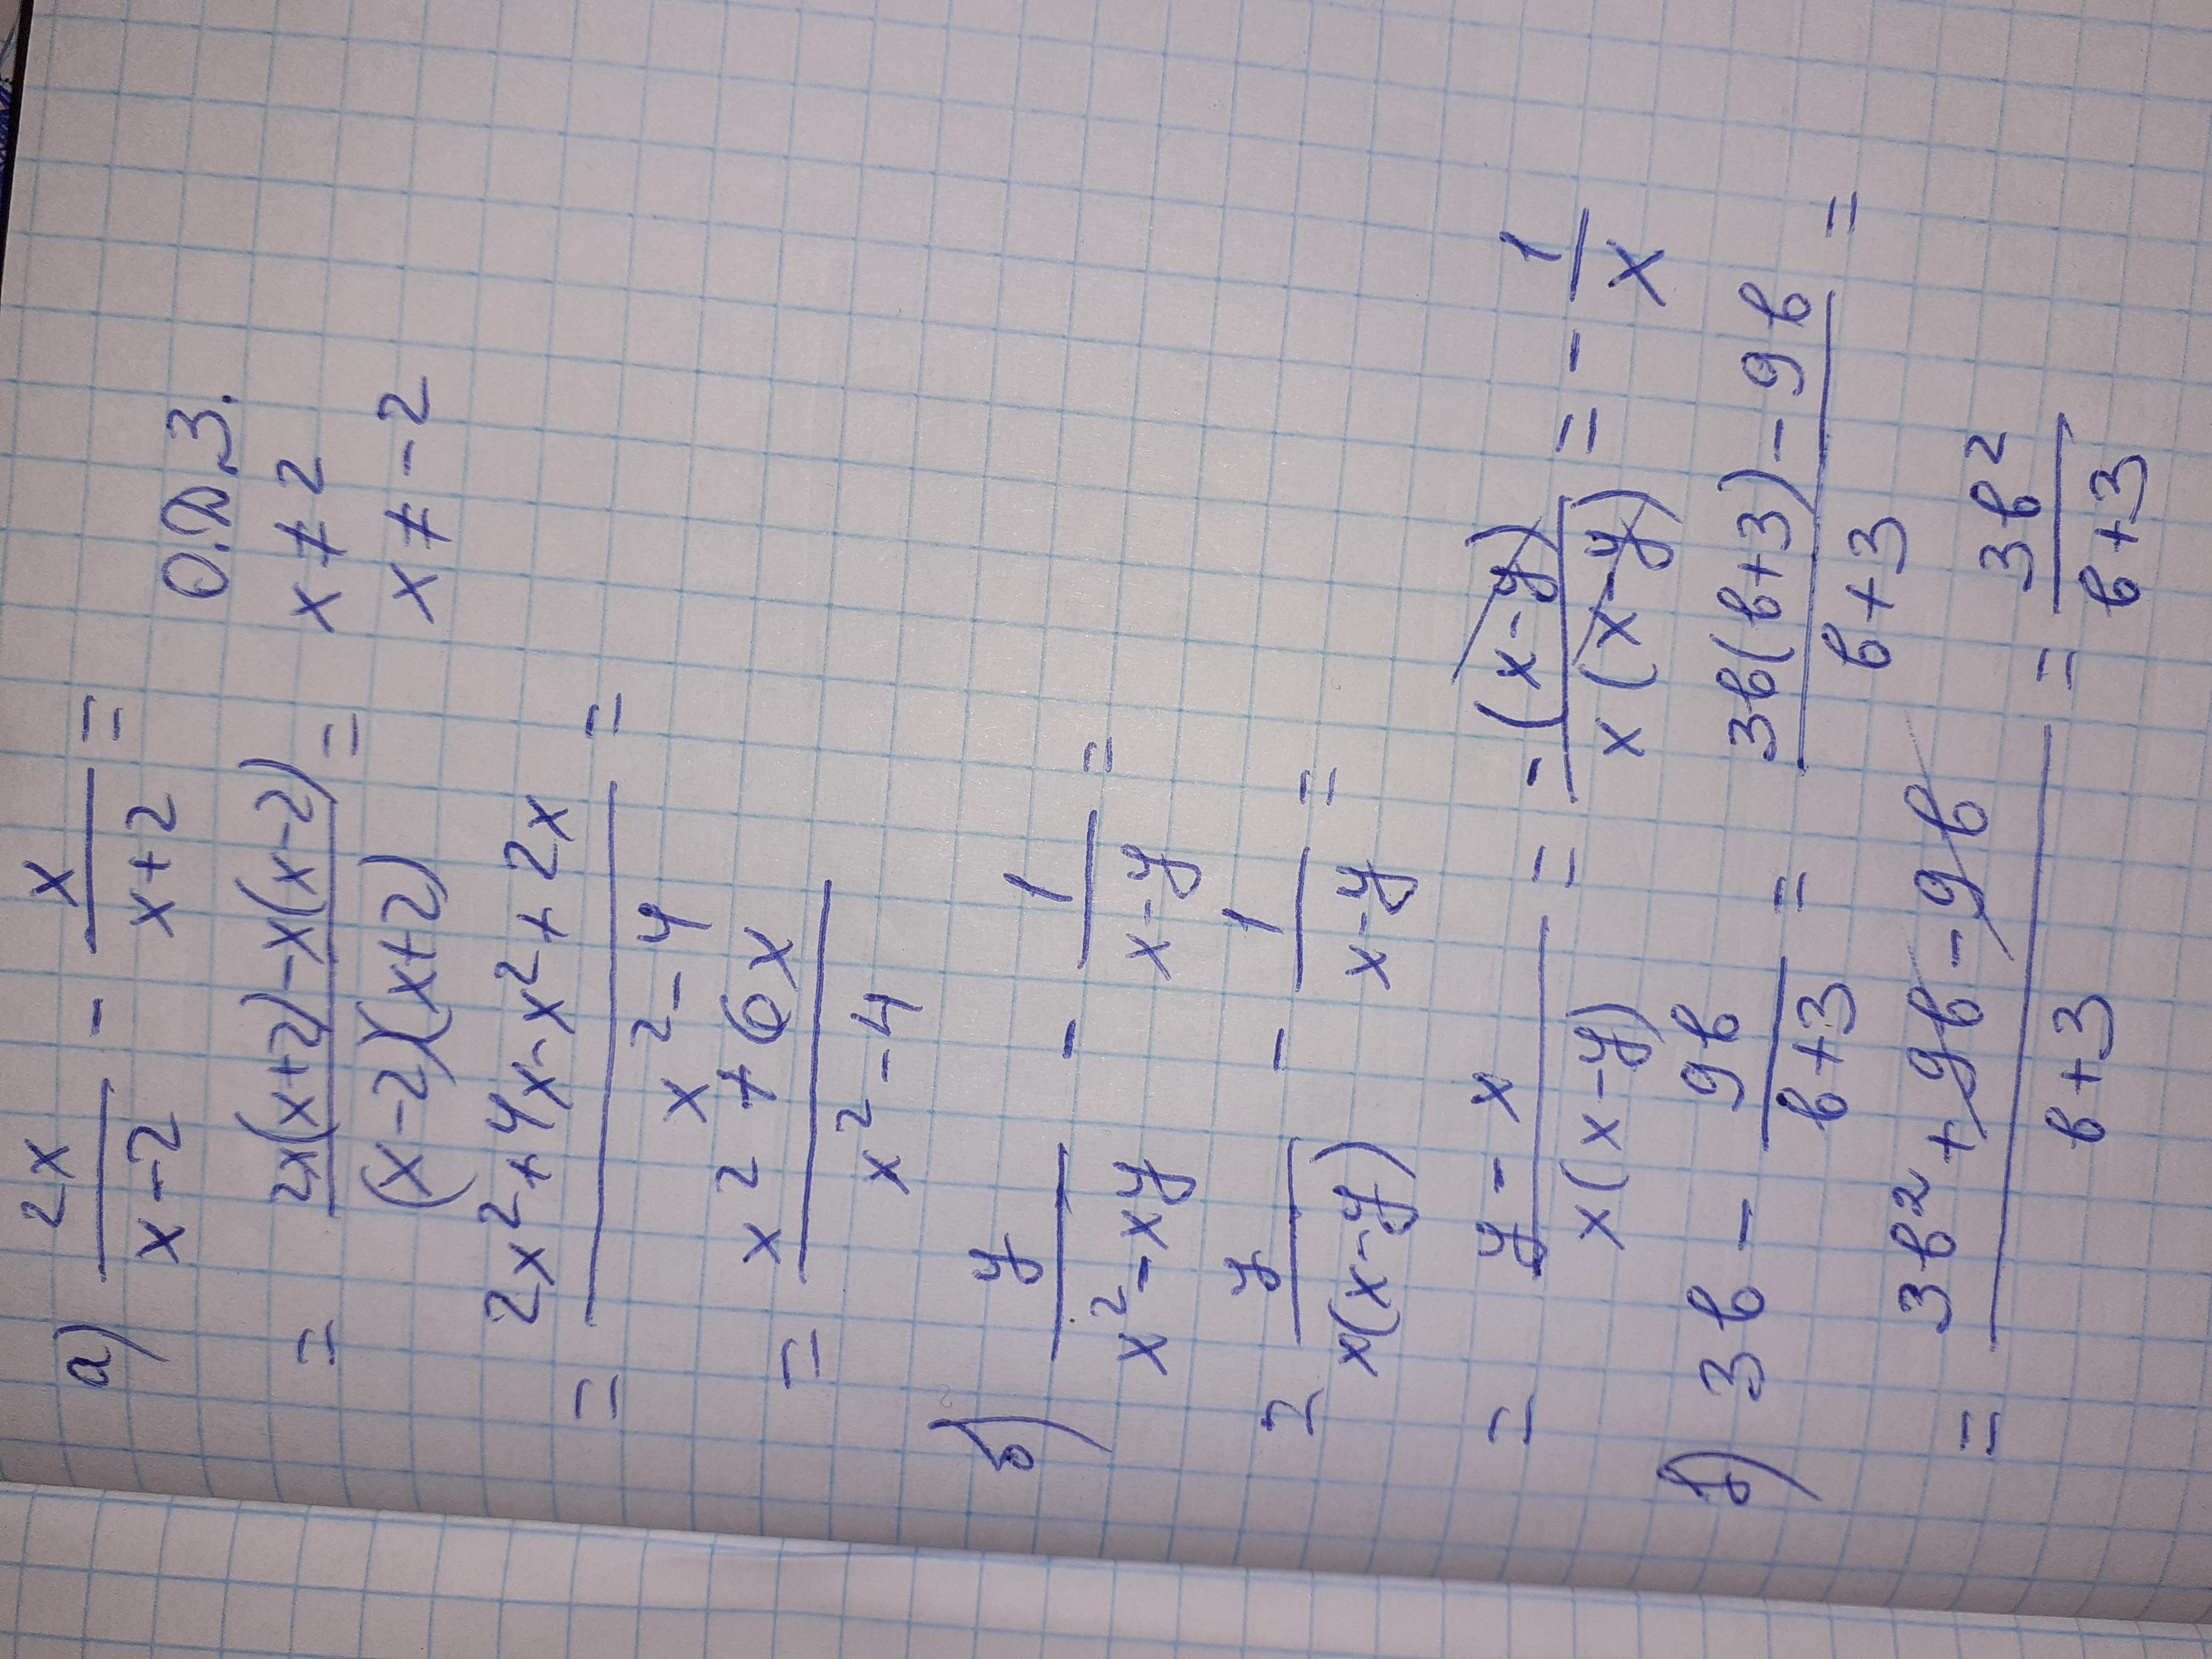 а) 2x/(x-2) - x/(x+2) =
О.Д.З.
= (2x(x+2)-x(x-2))/((x-2)(x+2)) =
x ≠ 2
x ≠ -2
= (2x²+4x-x²+2x)/(x²-4) =
= (x²+6x)/(x²-4)
б) y/(x²-xy) - 1/(x-y) =
= y/(x(x-y)) - 1/(x-y) =
= (y-x)/(x(x-y)) = -(x-y)/(x(x-y)) = -1/x
в) 3в - 9в/(в+3) = (3в(в+3)-9в)/(в+3) =
= (3в²+9в-9в)/(в+3) = 3в²/(в+3)